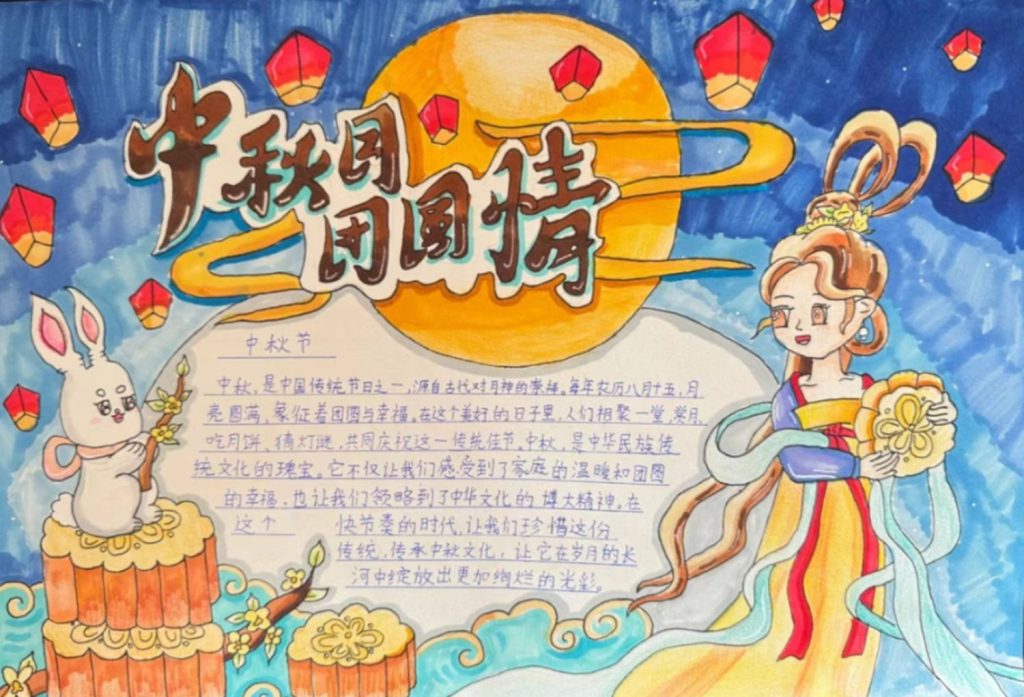 中秋月
团圆情
中秋节
中秋,是中国传统节日之一,源自古代对月神的崇拜。每年农历八月十五,月
亮圆满,象征着团圆与幸福。在这个美好的日子里,人们相聚一堂,赏月、
吃月饼、猜灯谜,共同庆祝这一传统佳节。中秋,是中华民族传
统文化的瑰宝。它不仅让我们感受到了家庭的温暖和团圆
的幸福,也让我们领略到了中华文化的博大精神。在
这个 快节奏的时代,让我们珍惜这份
传统,传承中秋文化,让它在岁月的长
河中绽放出更加绚烂的光彩。